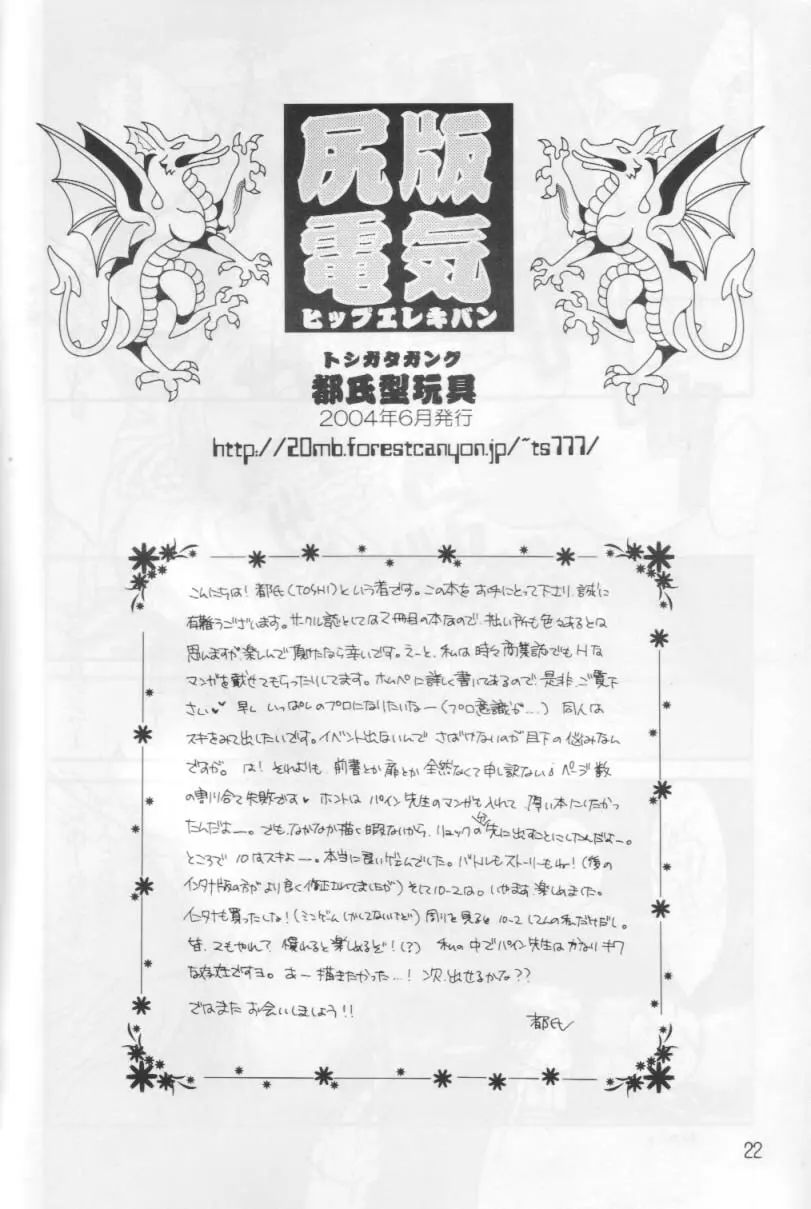 尻版
電気
ヒップエレキバン
トシガタガング
都氏型玩具
2004年6月発行
http://20mb.forestcanyon.jp/~ts777/
こんにちは!都氏(TOSHI)という者です。この本をお手にとって下さり誠に
有難うございます。サークル誌としては2冊目の本なので、拙い所も色々あるとは
思いますが楽しんで頂けたなら幸いです。えーと、私は時々商業誌でもHな
マンガを載せてもらったりしてます。ホムペに詳しく書いてあるので是非ご覧下
さい♥♥ 早くいっぱしのプロになりたいなー(プロ意識が…) 同人は
スキをみて出したいです。イベント出ないんでさばけないのが目下の悩みなん
ですが。は!それよりも、前書とか扉とか全然なくて申し訳ない ページ数
の割り合て失敗です♥ ホントはパイン先生のマンガも入れて厚い本にしたかっ
たんだよー。でも、なかなか描く暇ないから、リュックの分先に出すことにしたんだよー。
ところで10はスキよー。本当に良いゲームでした。バトルもストーリーもね!(後の
インタナ版の方がより良く修正されてましたが)そして10-2は。いやます楽しめました。
インタナも買ったしな!(ミニゲームしかしてないけど)周りを見ると10-2 してんの私だけだし。
皆、つもやれて 慣れると楽しめるぞ!(?) 私の中でパイン先生はかなりキワ
な存在ですヨ。あー描きたかった…!次、出せるかな??
ではまたお会いしましょう!!
都氏
22